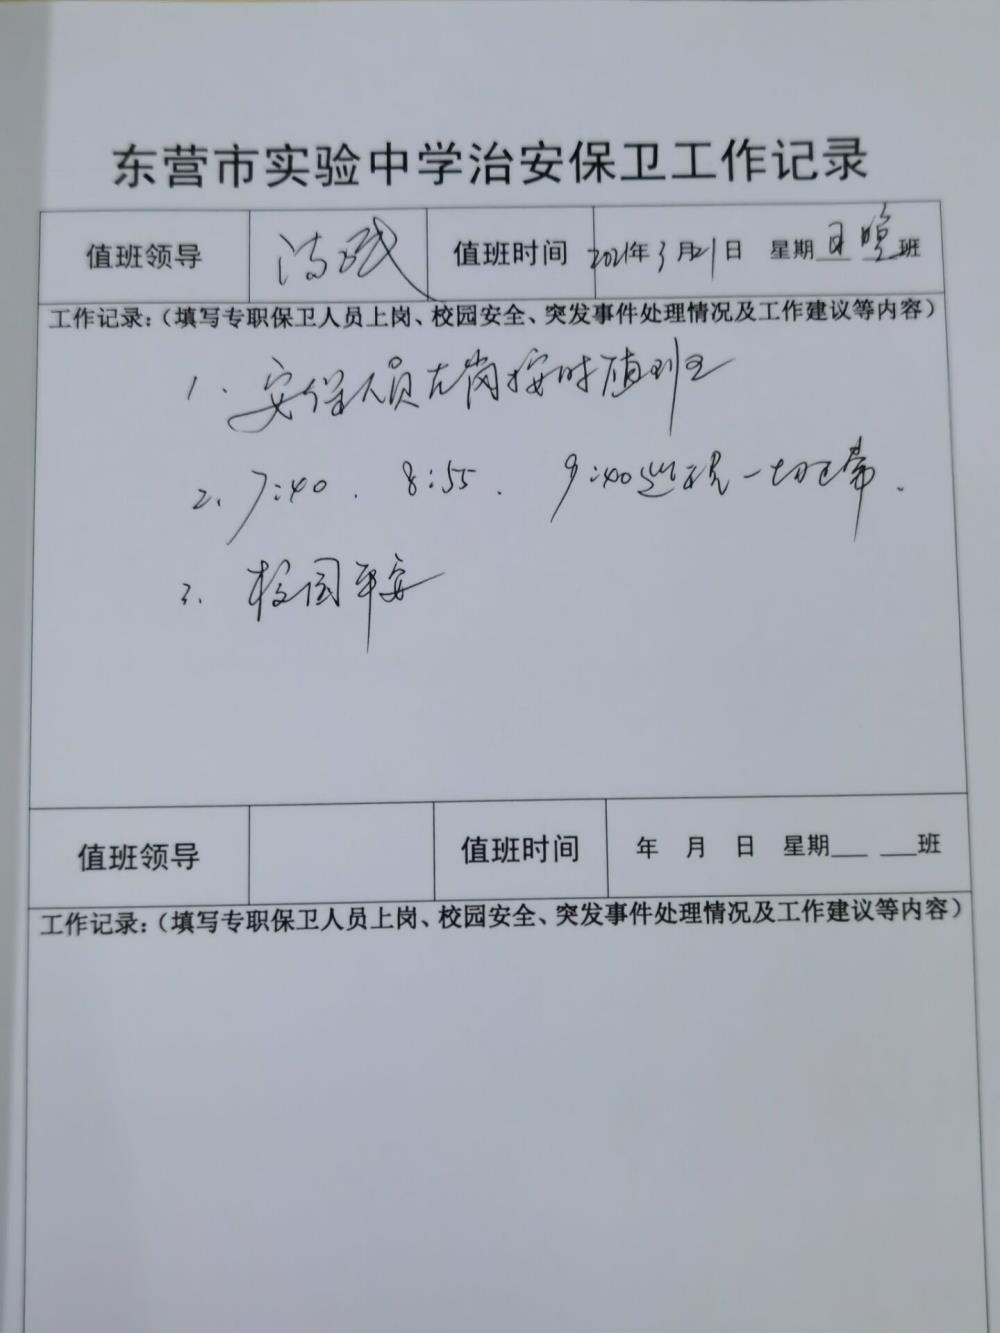 东营市实验中学治安保卫工作记录
值班领导 值班时间 2021年3月21日 星期日 晚班
工作记录:（填写专职保卫人员上岗、校园安全、突发事件处理情况及工作建议等内容）
1. 安保人员在岗按时值班
2. 7:40. 8:55. 9:40巡视一切正常.
3. 校园平安
值班领导 值班时间 年 月 日 星期___ ___班
工作记录:（填写专职保卫人员上岗、校园安全、突发事件处理情况及工作建议等内容）